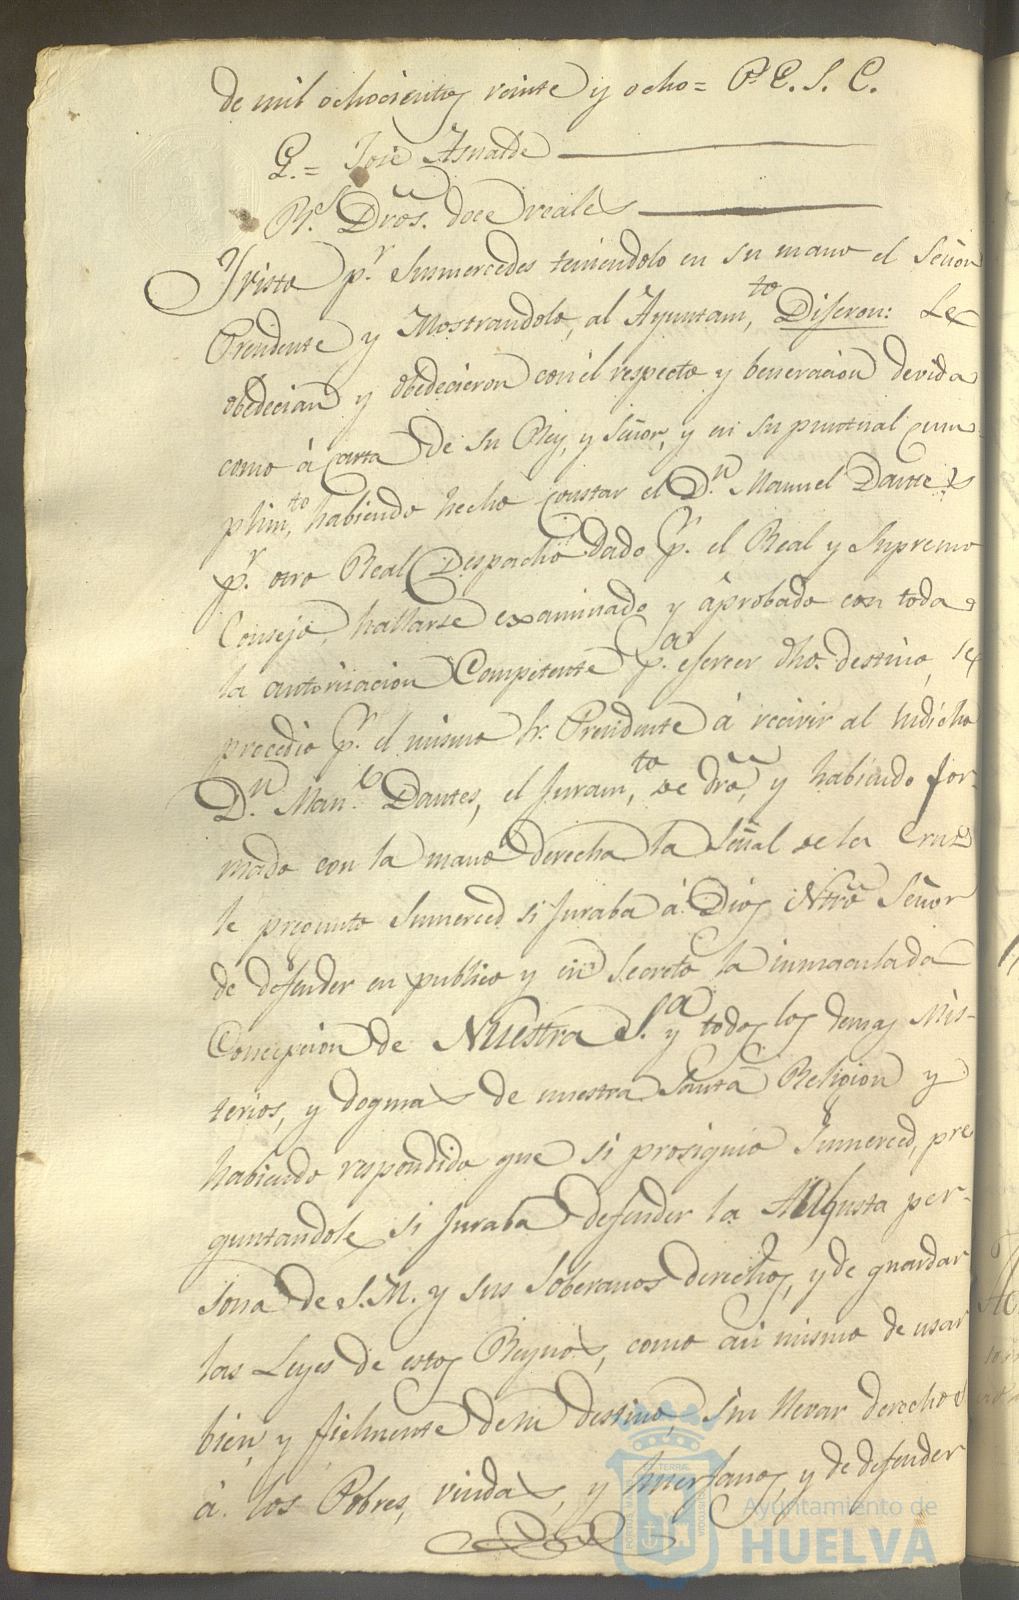 de mil ochocientos veinte y ocho= P.r E. S. C.
G.= José Asnalde
R.s Dros. doce reales
Y visto p.r Susmercedes teniendolo en su mano el Señor
Presidente y Mostrandolo, al Ayuntam.to, Diseron: Le
obedecian y obedecieron con el respecto y beneracion devida
como à carta de su Rey, y Señor, y en su puntual cum-
plim.to, habiendo hecho constar el D.n Manuel Dantes
p.r otro Real Despacho dado p.r el Real y Supremo
Consejo, hallarse examinado y aprobado con toda
la autorisacion Competente p.a eserser dho. destino, se
procedio p.r el mismo Sr. Presidente à recivir al Indicho
D.n Man.l Dantes, el Juram.to, de dro, y habiendo for-
mado con la mano derecha la Señal de la Cruz
le pregunto Sumerced si Juraba à Dios Ntro Señor
de defender en publico y en Secreto la inmaculada
Concepcion de Nuestra S.a y todos los demas Mis-
terios, y dogmas de nuestra Santa Religion y
habiendo respondido que si prosiguio Sumerced, pre
guntandole si Juraba defender la Augusta per-
sona de S. M. y sus Soberanos derechos, y de guardar
las Leyes de estos Reynos, como asi mismo de usar
bien, y fielmente de su destino, sin llevar derechos
à los Pobres, viudas, y huerfanos, y de defender
Ayuntamiento de
HUELVA